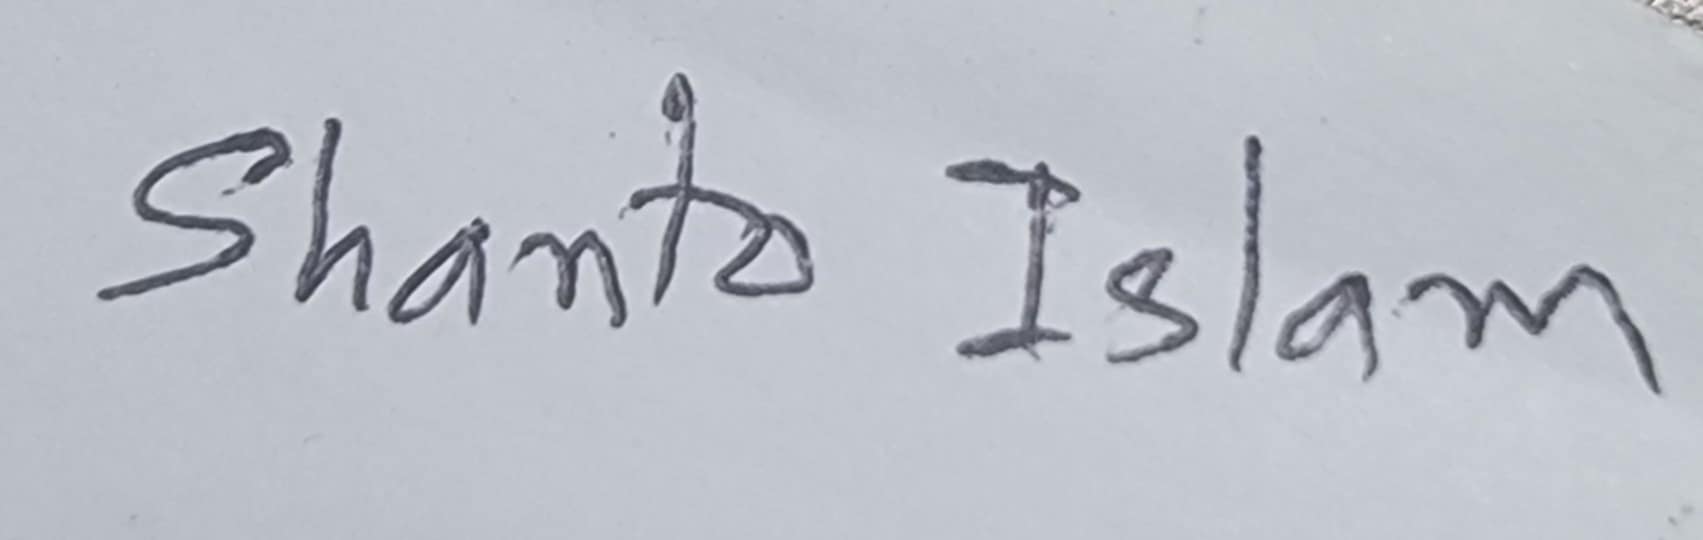 Shanto Islam